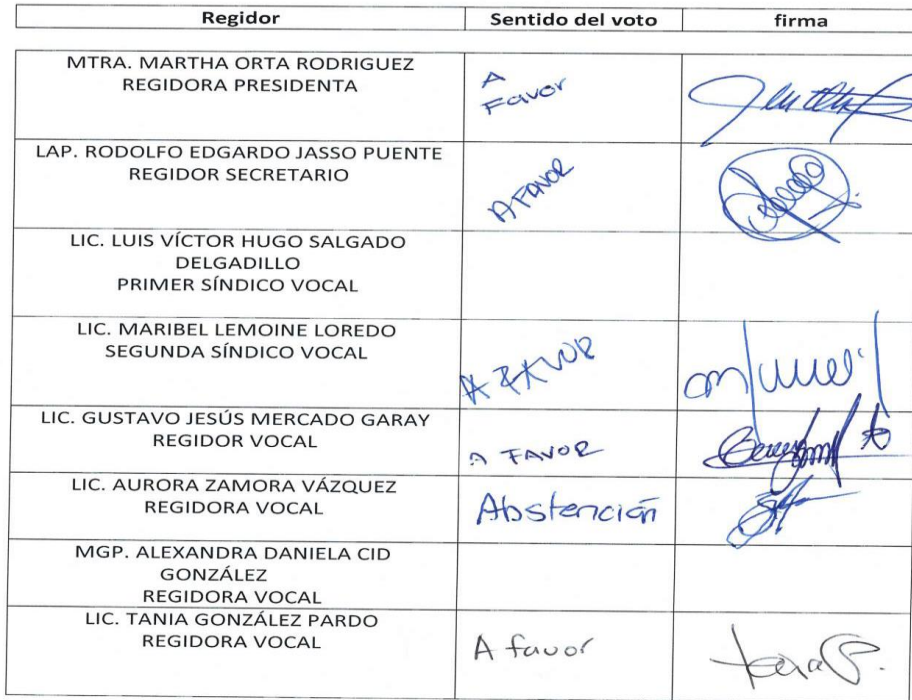 Regidor Sentido del voto firma
MTRA. MARTHA ORTA RODRIGUEZ
REGIDORA PRESIDENTA
A
Favor
LAP. RODOLFO EDGARDO JASSO PUENTE
REGIDOR SECRETARIO
A FAVOR
LIC. LUIS VÍCTOR HUGO SALGADO
DELGADILLO
PRIMER SÍNDICO VOCAL
LIC. MARIBEL LEMOINE LOREDO
SEGUNDA SÍNDICO VOCAL
A FAVOR
LIC. GUSTAVO JESÚS MERCADO GARAY
REGIDOR VOCAL
A FAVOR
LIC. AURORA ZAMORA VÁZQUEZ
REGIDORA VOCAL
Abstención
MGP. ALEXANDRA DANIELA CID
GONZÁLEZ
REGIDORA VOCAL
LIC. TANIA GONZÁLEZ PARDO
REGIDORA VOCAL
A favor